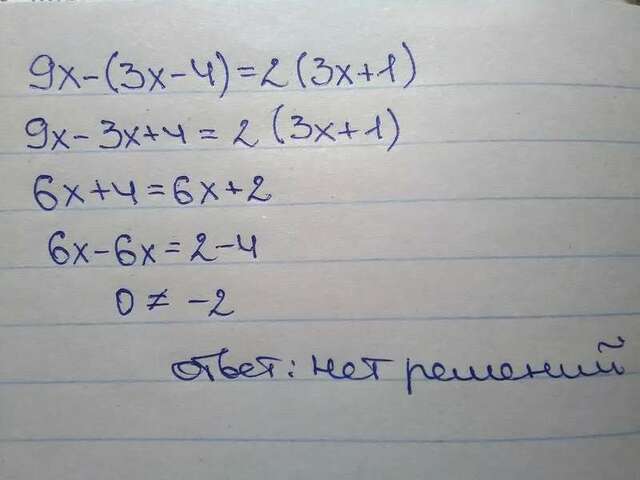 9x-(3x-4)=2(3x+1)
9x-3x+4=2(3x+1)
6x+4=6x+2
6x-6x=2-4
0≠-2
ответ: нет решений